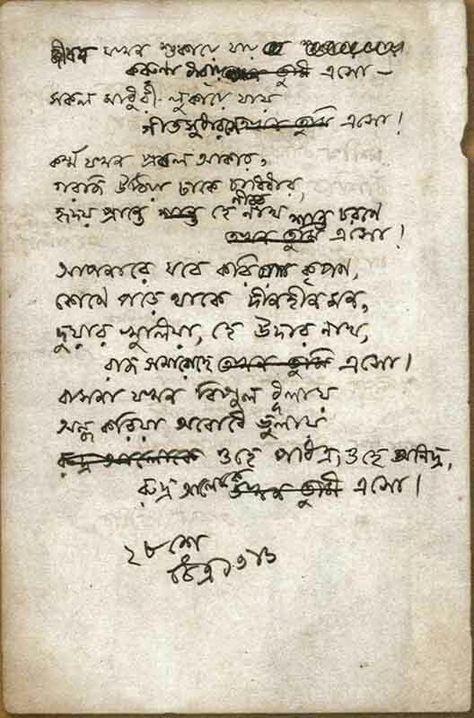 জীবন যখন শুকায়ে যায়
করুণা ধারায় তখন তুমি এসো –
সকল মাধুরী লুকায়ে যায়
গীতসুধারসে তখন তুমি এসো!
কর্ম্ম যখন প্রবল আকার,
গরজি উঠিয়া ঢাকে চারিধার,
হৃদয় প্রান্তে শান্ত হে নীরব নাথ শান্ত চরণে
তখন তুমি এসো!
আপনারে যবে করিয়া কৃপণ,
কোণে পড়ে থাকে দীনহীন মন,
দুয়ার খুলিয়া, হে উদার নাথ,
রাজ সমারোহে তখন তুমি এসো।
বাসনা যখন বিপুল ধূলায়
অন্ধ করিয়া অবোধে ভুলায়
রুদ্র আলোকে ওহে পবিত্র, ওহে অনিদ্র,
রুদ্র আলোকে তখন তুমি এসো।
২৮শে
চৈত্র ১৩১৬